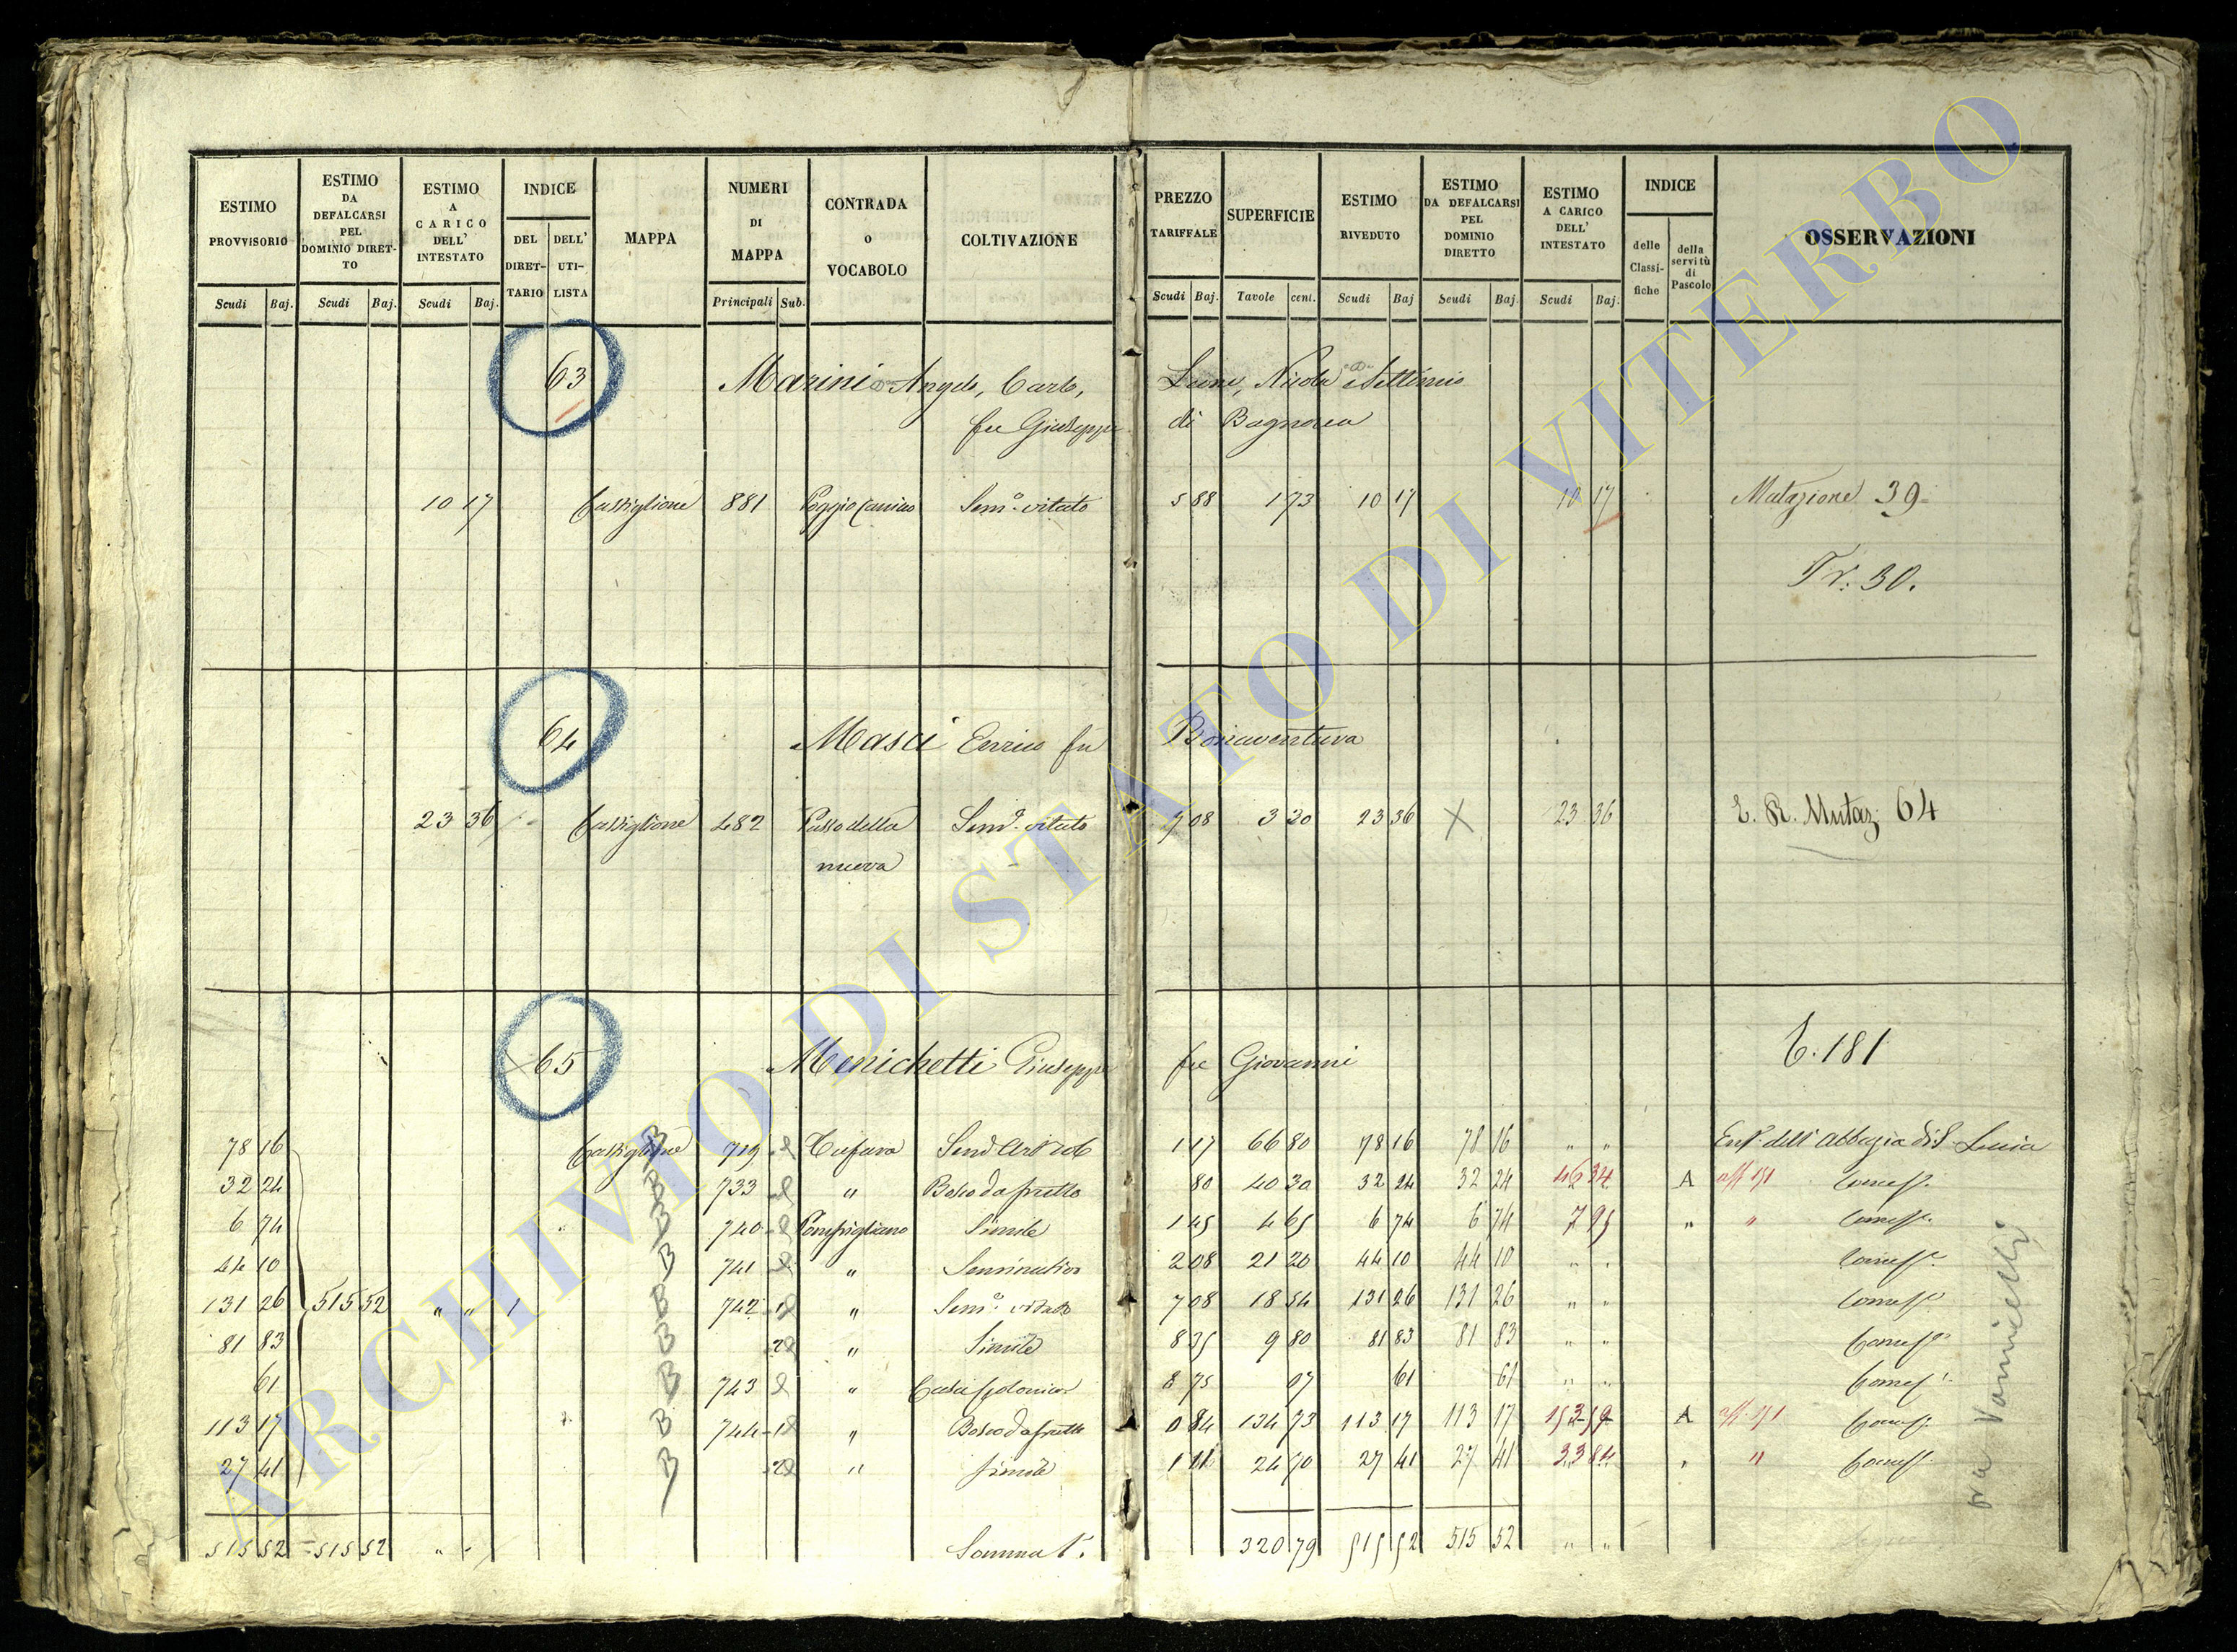 ESTIMO PROVVISORIO
ESTIMO DA DEFALCARSI PEL DOMINIO DIRET-TO
ESTIMO A CARICO DELL' INTESTATO
INDICE
DEL DIRET-TARIO
DELL' UTI-LISTA
MAPPA
NUMERI DI MAPPA
CONTRADA O VOCABOLO
COLTIVAZIONE
PREZZO TARIFFALE
SUPERFICIE
ESTIMO RIVEDUTO
ESTIMO DA DEFALCARSI PEL DOMINIO DIRETTO
ESTIMO A CARICO DELL' INTESTATO
INDICE
delle Classi-fiche
della servitù di Pascolo
OSSERVAZIONI
Scudi Baj. Scudi Baj. Scudi Baj. Principali Sub. Scudi Baj. Tavole cent. Scudi Baj Scudi Baj. Scudi Baj.
63 Marini Angelo, Carlo, Nicola e Settimio
fu Giuseppe di Bagnorea
10 17 Castiglione 881 Sem.o vitato 5 88 1 73 10 17 10 17 Mutazione 39
Tr. 30.
64 Masci Enrico fu Bonaventura
23 36 Castiglione 482 Passo della Sem.o vitato 7 08 3 30 23 36 X 23 36 E. R. Mutaz. 64
nuova
T. 181
65 Menichetti Giuseppe fu Giovanni
78 16 Castiglione B 719 1 17 66 80 78 16 78 16 " " Enf. dell'Abbazia di S. Lucia
32 24 B 733 " Bosco da frutto 80 40 30 32 24 32 24 46 34 A
6 74 B 740 Simile 1 45 4 65 6 74 6 74 7 95 " "
44 10 B 741 " Seminativo 2 08 21 20 44 10 44 10 " "
131 26 515 52 " " 1 B 742 1 " Sem.o vitato 7 08 18 54 131 26 131 26 " "
81 83 B 2 " Simile 8 35 9 80 81 83 81 83 " "
61 B 743 " Casa colonica 8 75 07 61 61 " "
113 17 B 744 1 " Bosco da frutto 0 84 134 73 113 17 113 17 A
27 41 B 2 " Simile 1 11 24 70 27 41 27 41 "
515 52 = 515 52 " " Somma 320 79 515 52 515 52 " "
ARCHIVIO DI STATO DI VITERBO